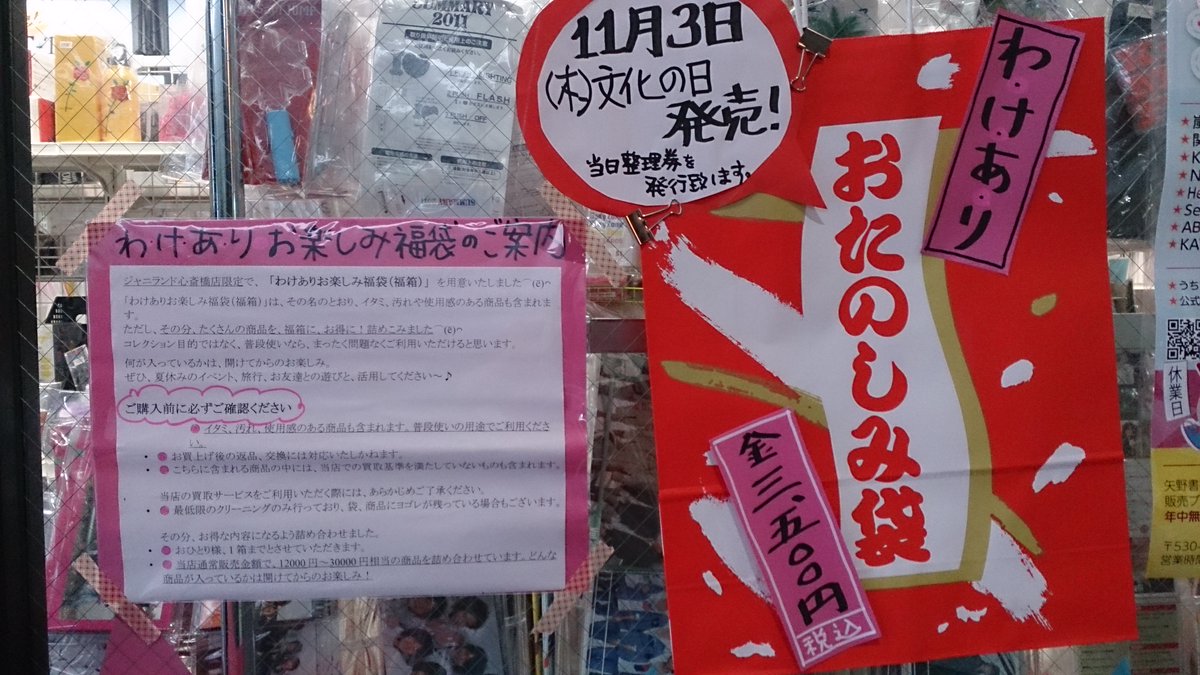 SUMMARY
2011
FLASH
11月3日
(木)文化の日
発売!
当日整理券を
発行致します。
わ・け・あ・り
おたのしみ袋
金三、五〇〇円
税込
わ・け・あ・り お楽しみ福袋のご案内
ジャニランド心斎橋店限定で、「わけありお楽しみ福袋(福箱)」を用意いたしました⌒(ё)⌒
「わけありお楽しみ福袋(福箱)」は、その名のとおり、イタミ、汚れや使用感のある商品も含まれま
す。
ただし、その分、たくさんの商品を、福箱に、お得に!詰めこみました⌒(ё)⌒
コレクション目的ではなく、普段使いなら、まったく問題なくご利用いただけると思います。
何が入っているかは、開けてからのお楽しみ。
ぜひ、夏休みのイベント、旅行、お友達との遊びと、活用してください～♪
ご購入前に必ずご確認ください
イタミ、汚れ、使用感のある商品も含まれます。普段使いの用途でご利用くださ
い。
・お買上げ後の返品、交換には対応いたしかねます。
・こちらに含まれる商品の中には、当店での買取基準を満たしていないものも含まれます。
当店の買取サービスをご利用いただく際には、あらかじめご了承ください。
・最低限のクリーニングのみ行っており、袋、商品にヨゴレが残っている場合もございます。
その分、お得な内容になるよう詰め合わせました。
・おひとり様、1箱までとさせていただきます。
・当店通常販売金額で、12000円～30000円相当の商品を詰め合わせています。どんな
商品が入っているかは開けてからのお楽しみ!
★うち
★公式
休業日
矢野書
販売ブ
年中無
〒530-
営業時間